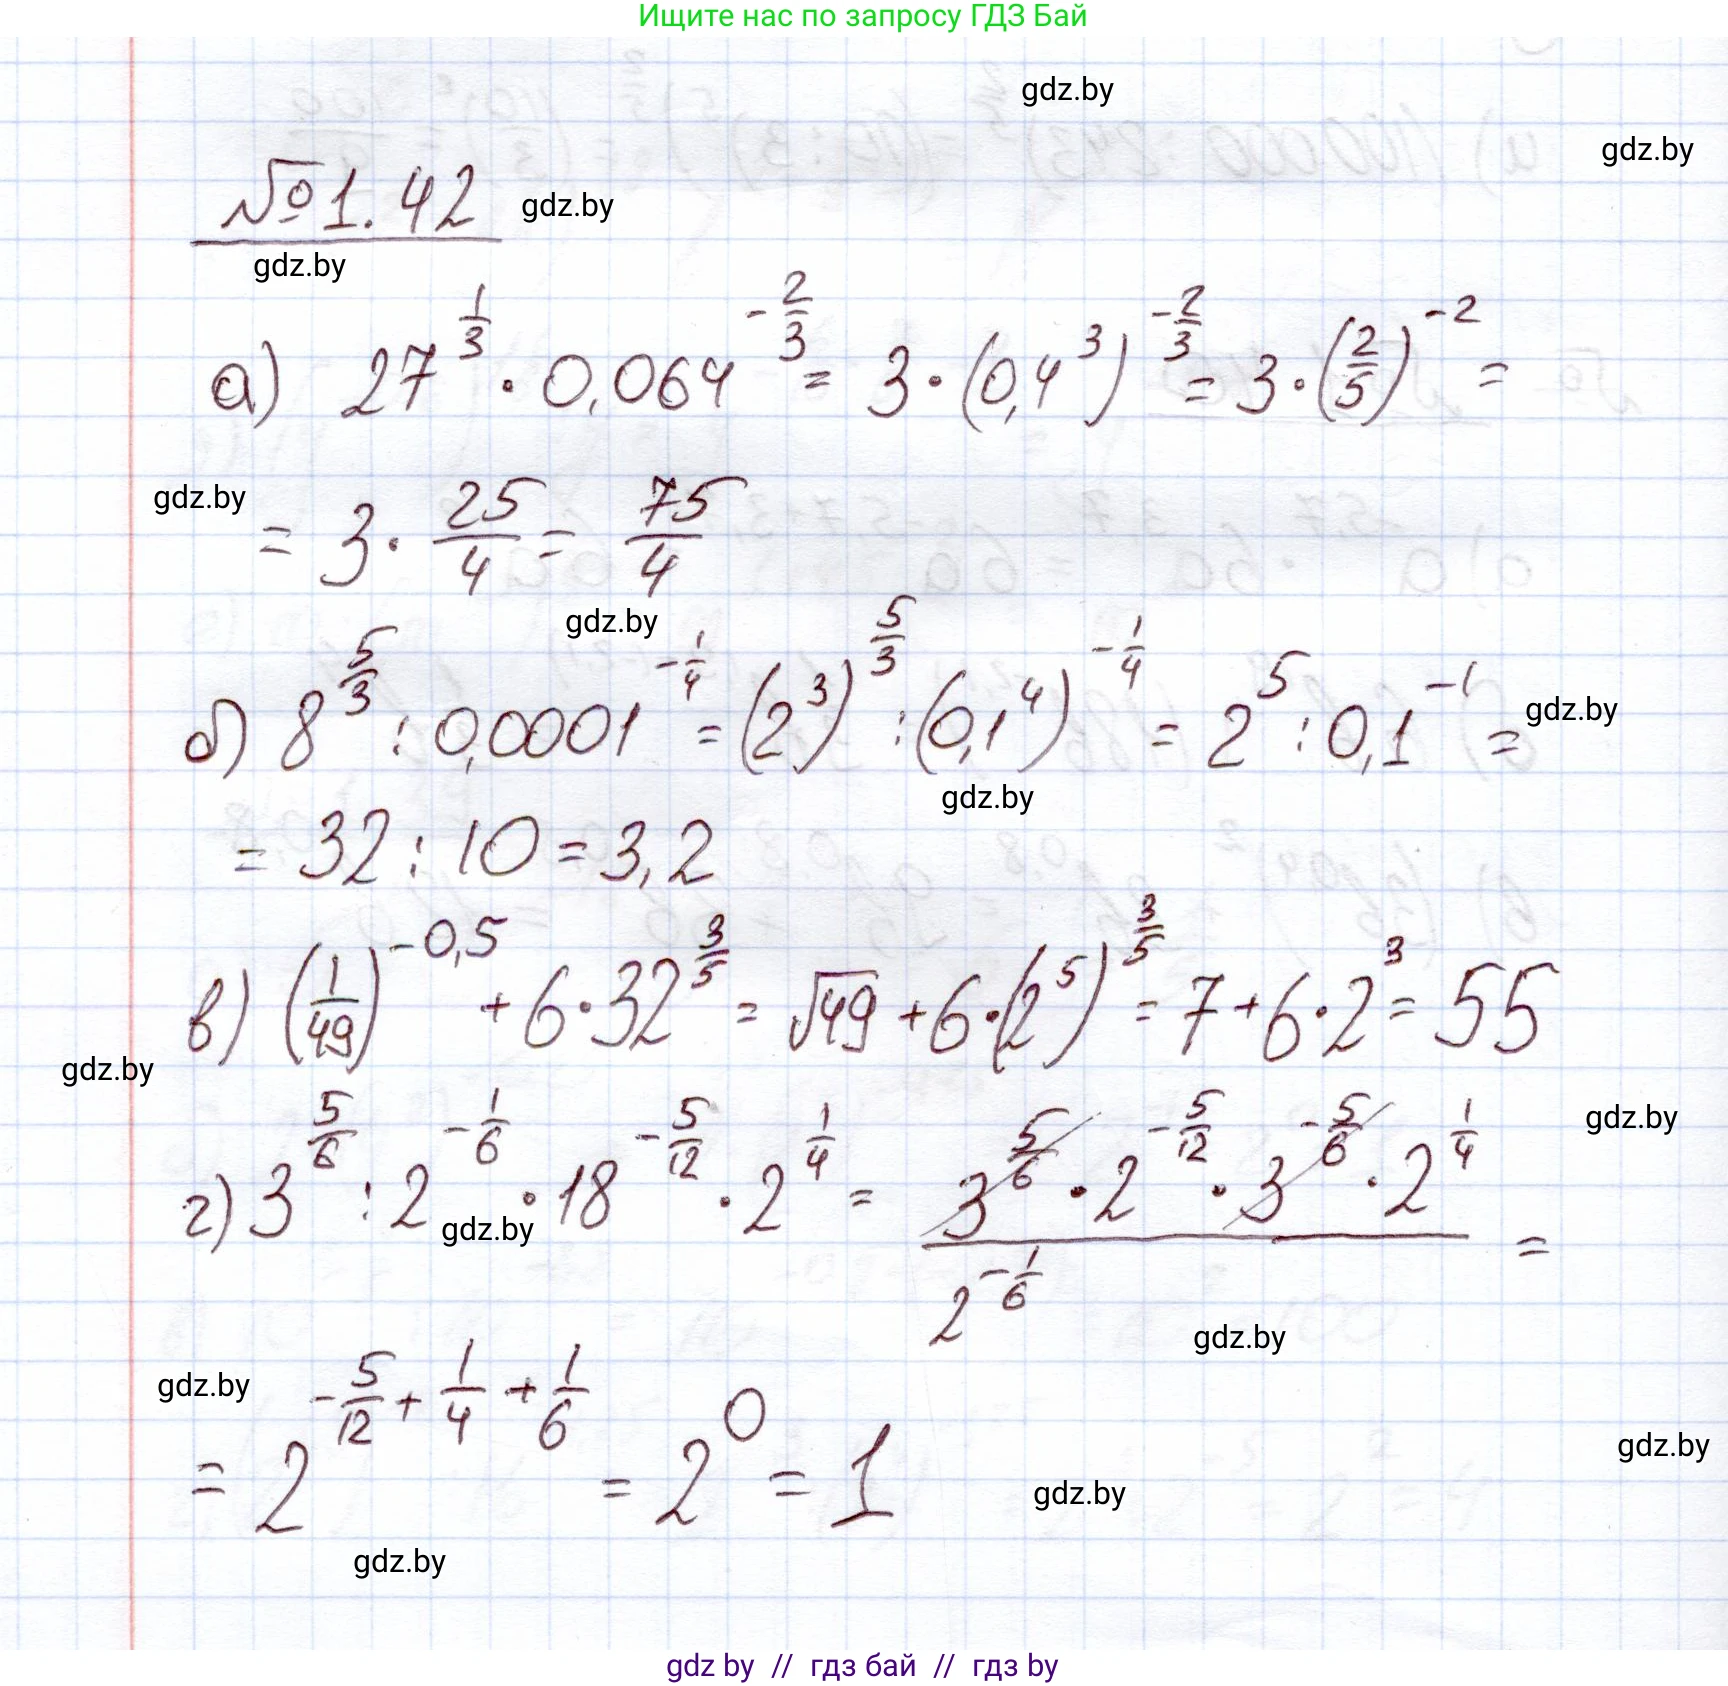 Ищите нас по запросу ГДЗ Бай
gdz.by
gdz.by
№1.42 gdz.by
gdz.by
а) 27^(1/3) · 0,064^(-2/3) = 3 · (0,4^3)^(-2/3) = 3 · (2/5)^(-2) =
gdz.by
= 3 · 25/4 = 75/4
gdz.by
б) 8^(5/3) : 0,0001^(-1/4) = (2^3)^(5/3) : (0,1^4)^(-1/4) = 2^5 : 0,1^(-1) =
gdz.by
gdz.by
= 32 : 10 = 3,2
в) (1/49)^(-0,5) + 6 · 32^(3/5) = √49 + 6 · (2^5)^(3/5) = 7 + 6 · 2^3 = 55
gdz.by
gdz.by
г) 3^(5/6) : 2^(-1/6) · 18^(-5/12) · 2^(1/4) = (3^(5/6) · 2^(-5/12) · 3^(-5/6) · 2^(1/4)) / 2^(-1/6) =
gdz.by
gdz.by
gdz.by
= 2^(-5/12 + 1/4 + 1/6) = 2^0 = 1
gdz.by
gdz.by
gdz.by
gdz by // гдз бай // гдз by